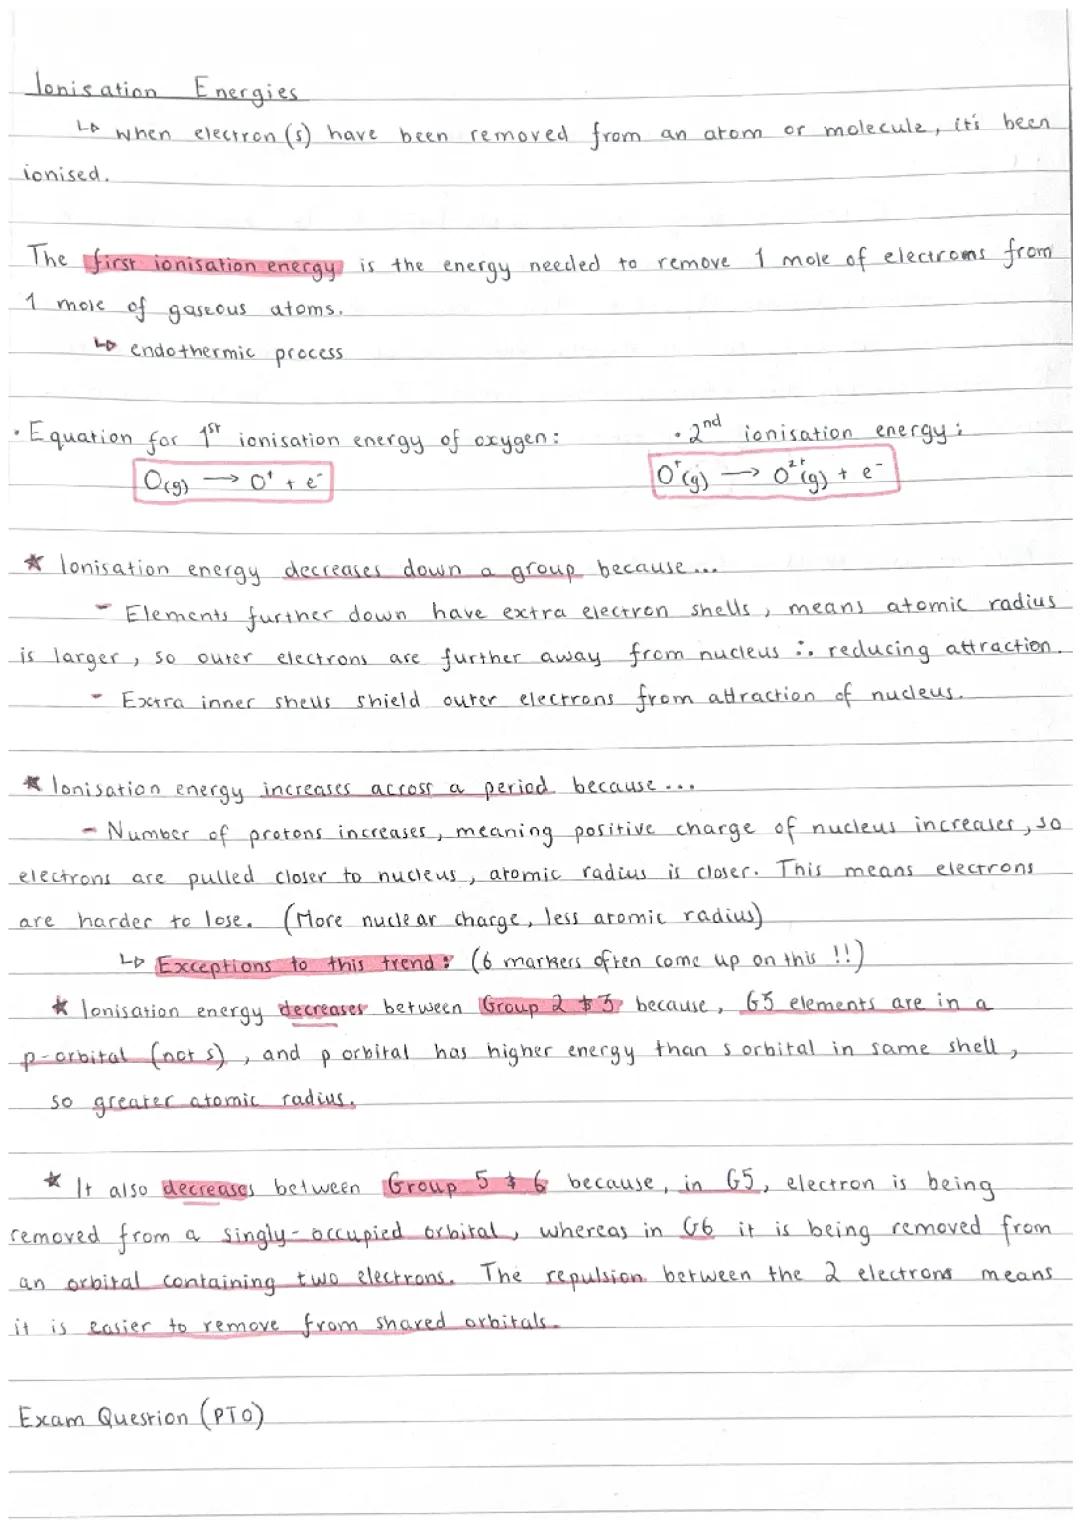 Ionisation Energies
↳ when electron(s) have been removed from an atom or molecule, it's been
ionised.
The first ionisation energy is the energy needed to remove 1 mole of electrons from
1 mole of gaseous atoms.
↳ endothermic process
· Equation for 1st ionisation energy of oxygen: · 2nd ionisation energy:
O(g) → O⁺ + e⁻ O⁺(g) → O²⁺(g) + e⁻
* Ionisation energy decreases down a group because...
- Elements further down have extra electron shells, means atomic radius
is larger, so outer electrons are further away from nucleus ∴ reducing attraction.
- Extra inner shells shield outer electrons from attraction of nucleus.
* Ionisation energy increases across a period because...
- Number of protons increases, meaning positive charge of nucleus increases, so
electrons are pulled closer to nucleus, atomic radius is closer. This means electrons
are harder to lose. (More nuclear charge, less atomic radius)
↳ Exceptions to this trend: (6 markers often come up on this !!)
* Ionisation energy decreases between Group 2 & 3 because, G3 elements are in a
p-orbital (not s), and p orbital has higher energy than s orbital in same shell,
so greater atomic radius.
* It also decreases between Group 5 & 6 because, in G5, electron is being
removed from a singly-occupied orbital, whereas in G6 it is being removed from
an orbital containing two electrons. The repulsion between the 2 electrons means
it is easier to remove from shared orbitals.
Exam Question (PTO)